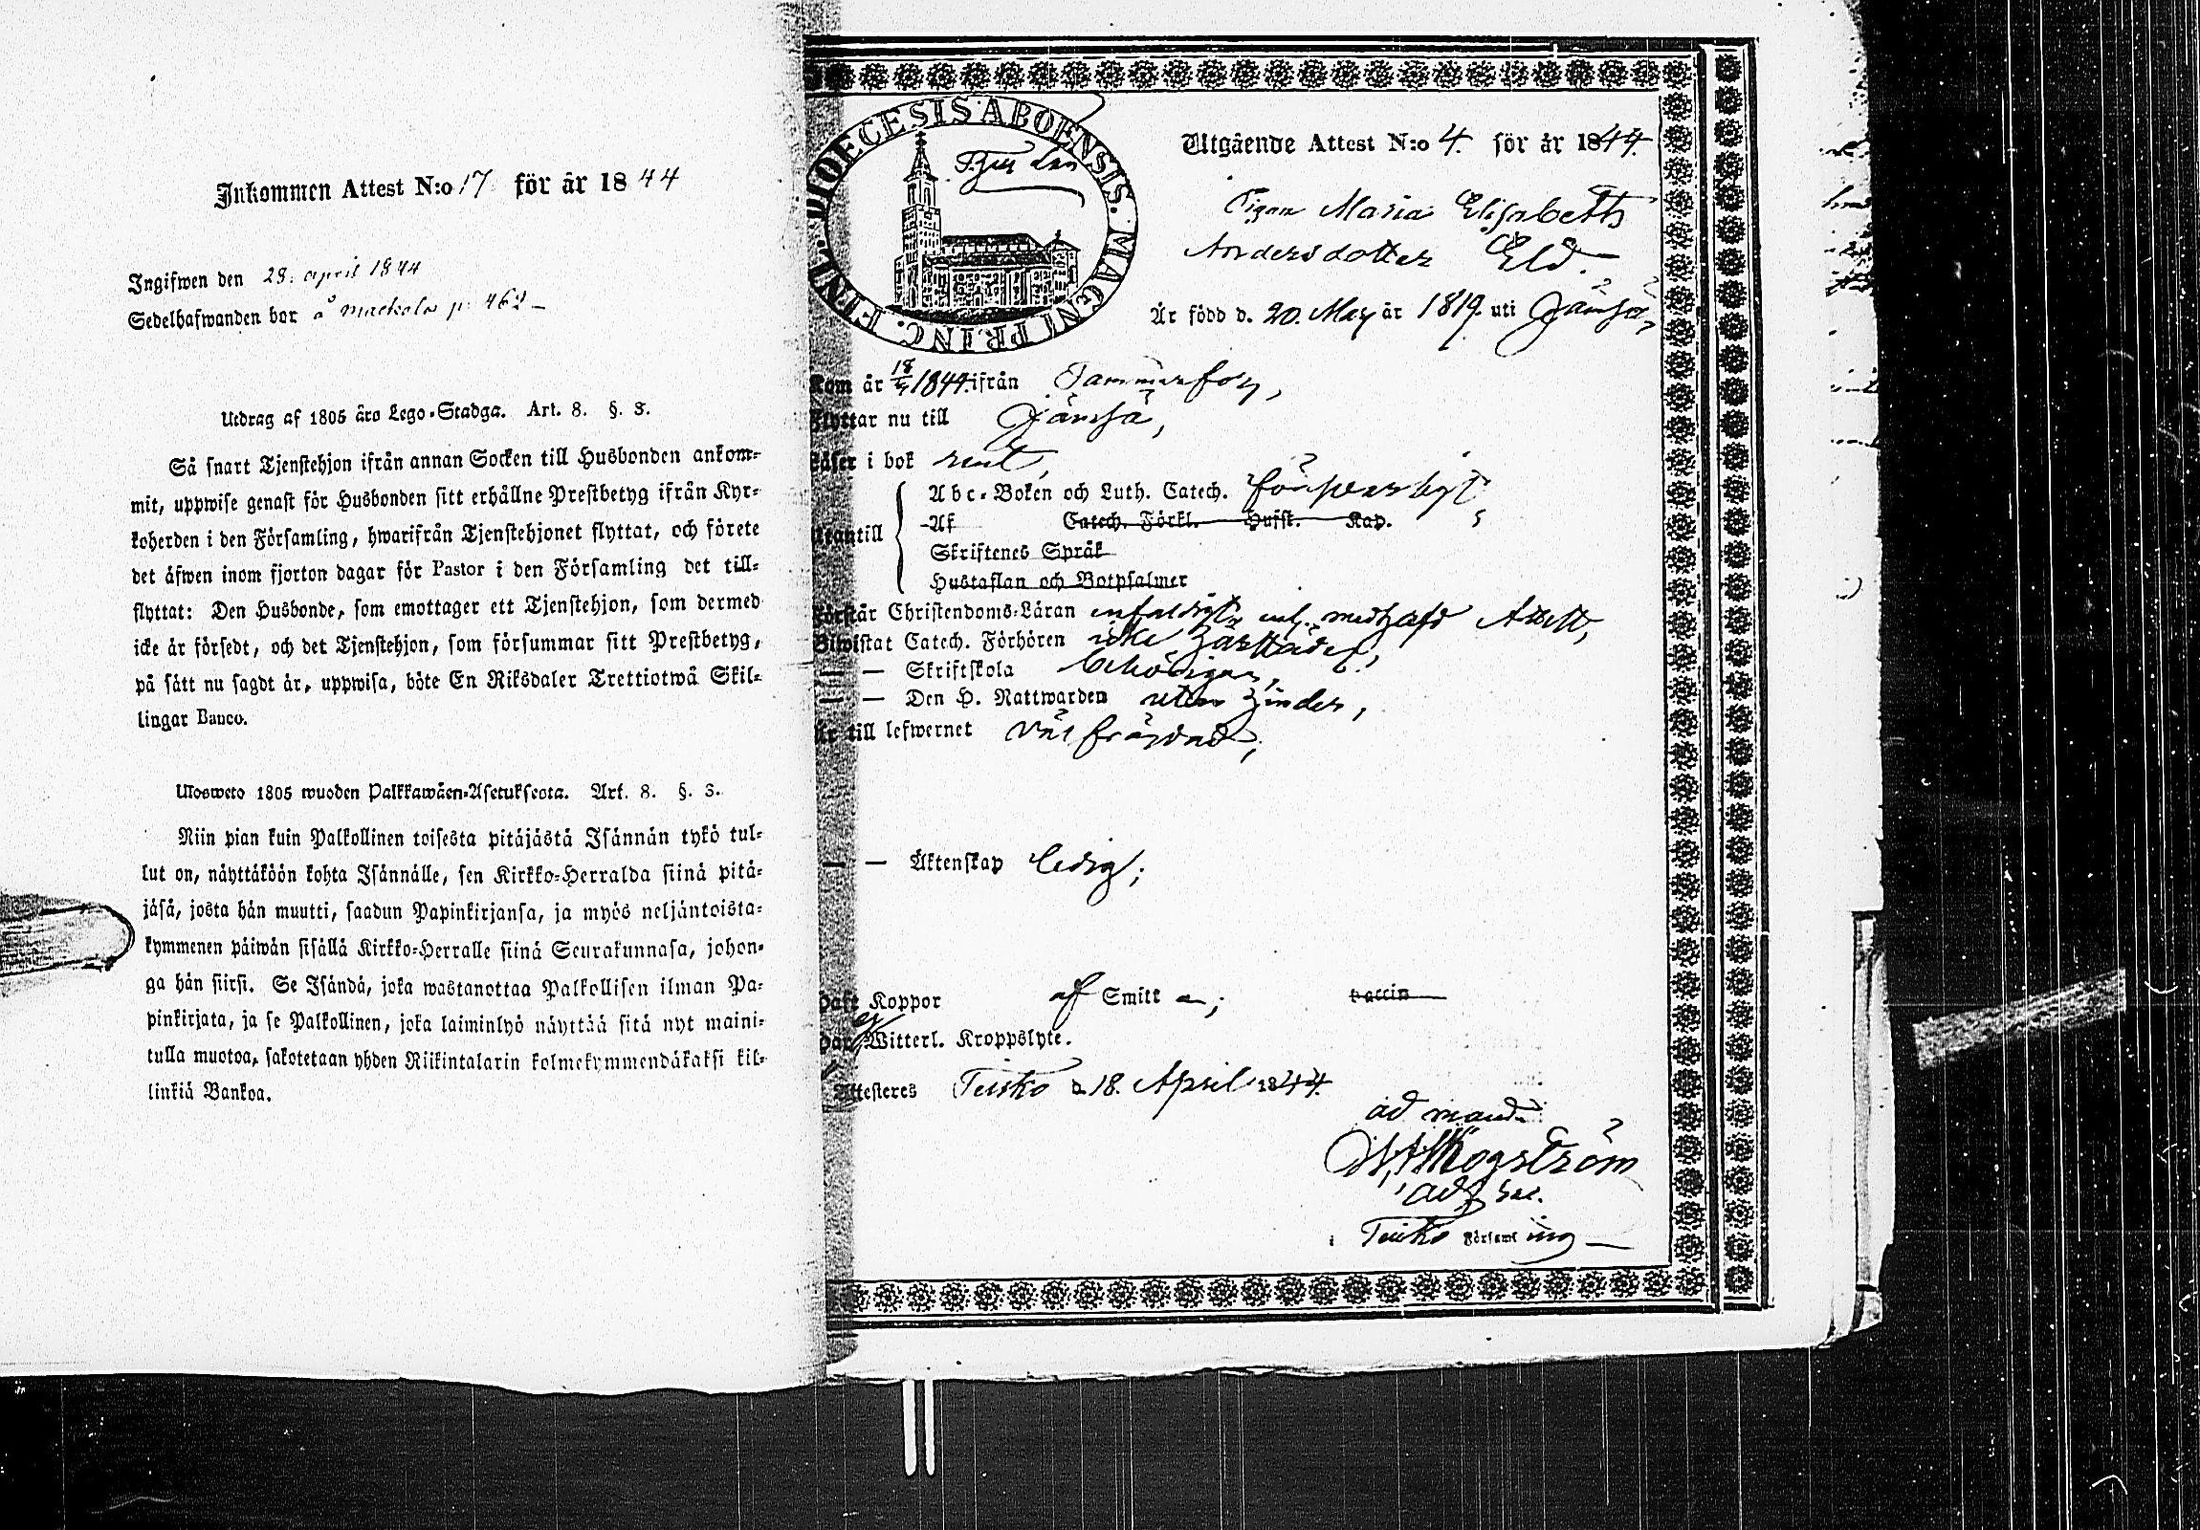 Inkommen Attest N:o 17 för år 1844
Ingifwen den 28. april 1844
Sedelhafwanden bor å p. 462
Utdrag af 1805 års Lego-Stadga. Art. 8. §. 3.
Så snart Tjenstehjon ifrån annan Socken till Husbonden ankom-
mit, uppwise genast för Husbonden sitt erhållne Prestbetyg ifrån Kyr-
koherden i den Församling, hwarifrån Tjenstehjonet flyttat, och förete
det äfwen inom fjorton dagar för Pastor i den Församling det till-
flyttat: Den Husbonde, som emottager ett Tjenstehjon, som dermed
icke är försedt, och det Tjenstehjon, som försummar sitt Prestbetyg,
på sätt nu sagdt är, uppwisa, böte En Riksdaler Trettiotwå Skil-
lingar Banco.
Ulosweto 1805 wuoden Palkkawäen-Asetuksesta. Art. 8. §. 3.
Niin pian kuin Palkollinen toisesta pitäjästä Isännän tykö tul-
lut on, näyttäköön kohta Isännälle, sen Kirkko-Herralda siinä pitä-
jäsä, josta hän muutti, saadun Papinkirjansa, ja myös neljäntoista-
kymmenen päiwän sisällä Kirkko-Herralle siinä Seurakunnasa, johon-
ga hän siirsi. Se Isändä, joka wastanottaa Palkollisen ilman Pa-
pinkirjata, ja se Palkollinen, joka laiminlyö näyttää sitä nyt maini-
tulla muotoa, sakotetaan yhden Riikintalarin kolmekymmendäkaksi kil-
linkiä Bankoa.
DIOECESIS ABOËNSIS. MAGNI PRINC. FINL.
Utgående Attest N:o 4. för år 1844.
Pigan Maria Elisabeth
Andersdotter Eld.
Är född d. 20. May år 1819. uti Jämsä,
Kom år 18/4 1844. ifrån Tammerfors,
Flyttar nu till Jämsä,
Läser i bok rent,
Utantill
Abc-Boken och Luth. Catech. försvarligt,
Af Catech. Förkl. Husst. Kap.
Skriftenes Språk
Hustaflan och Botpsalmer
Förstår Christendoms-Läran enfaldigt, enl. medhafd Attest,
Biwistat Catech. Förhören icke härstädes,
— — Skriftskola behörigen,
— — Den H. Nattwarden utan hinder,
Är till lefwernet väl frägdad,
— — Äktenskap ledig;
Haft Koppor af Smitt —; vaccin
Har ej Witterl. Kroppslyte.
Attesteres Teisko d. 18. April 1844.
ad mand.
Skogström
adj. sac.
i Teisko Församling